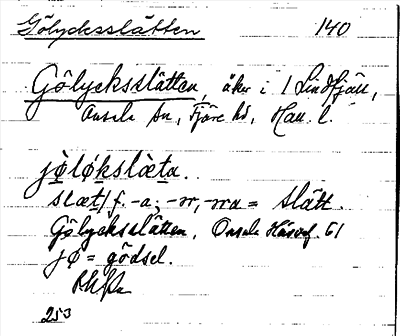 Gölycksslätten 140
Gölycksslätten, åker i 1 Lindfjäll,
Onsala sn, Fjäre hd, Hall. l.
jøløkslæta.
slæt/ f. -a; -ər, -ərna = slätt.
Gölycksslätten, Onsala Häradsf. 61
jø = gödsel.
253